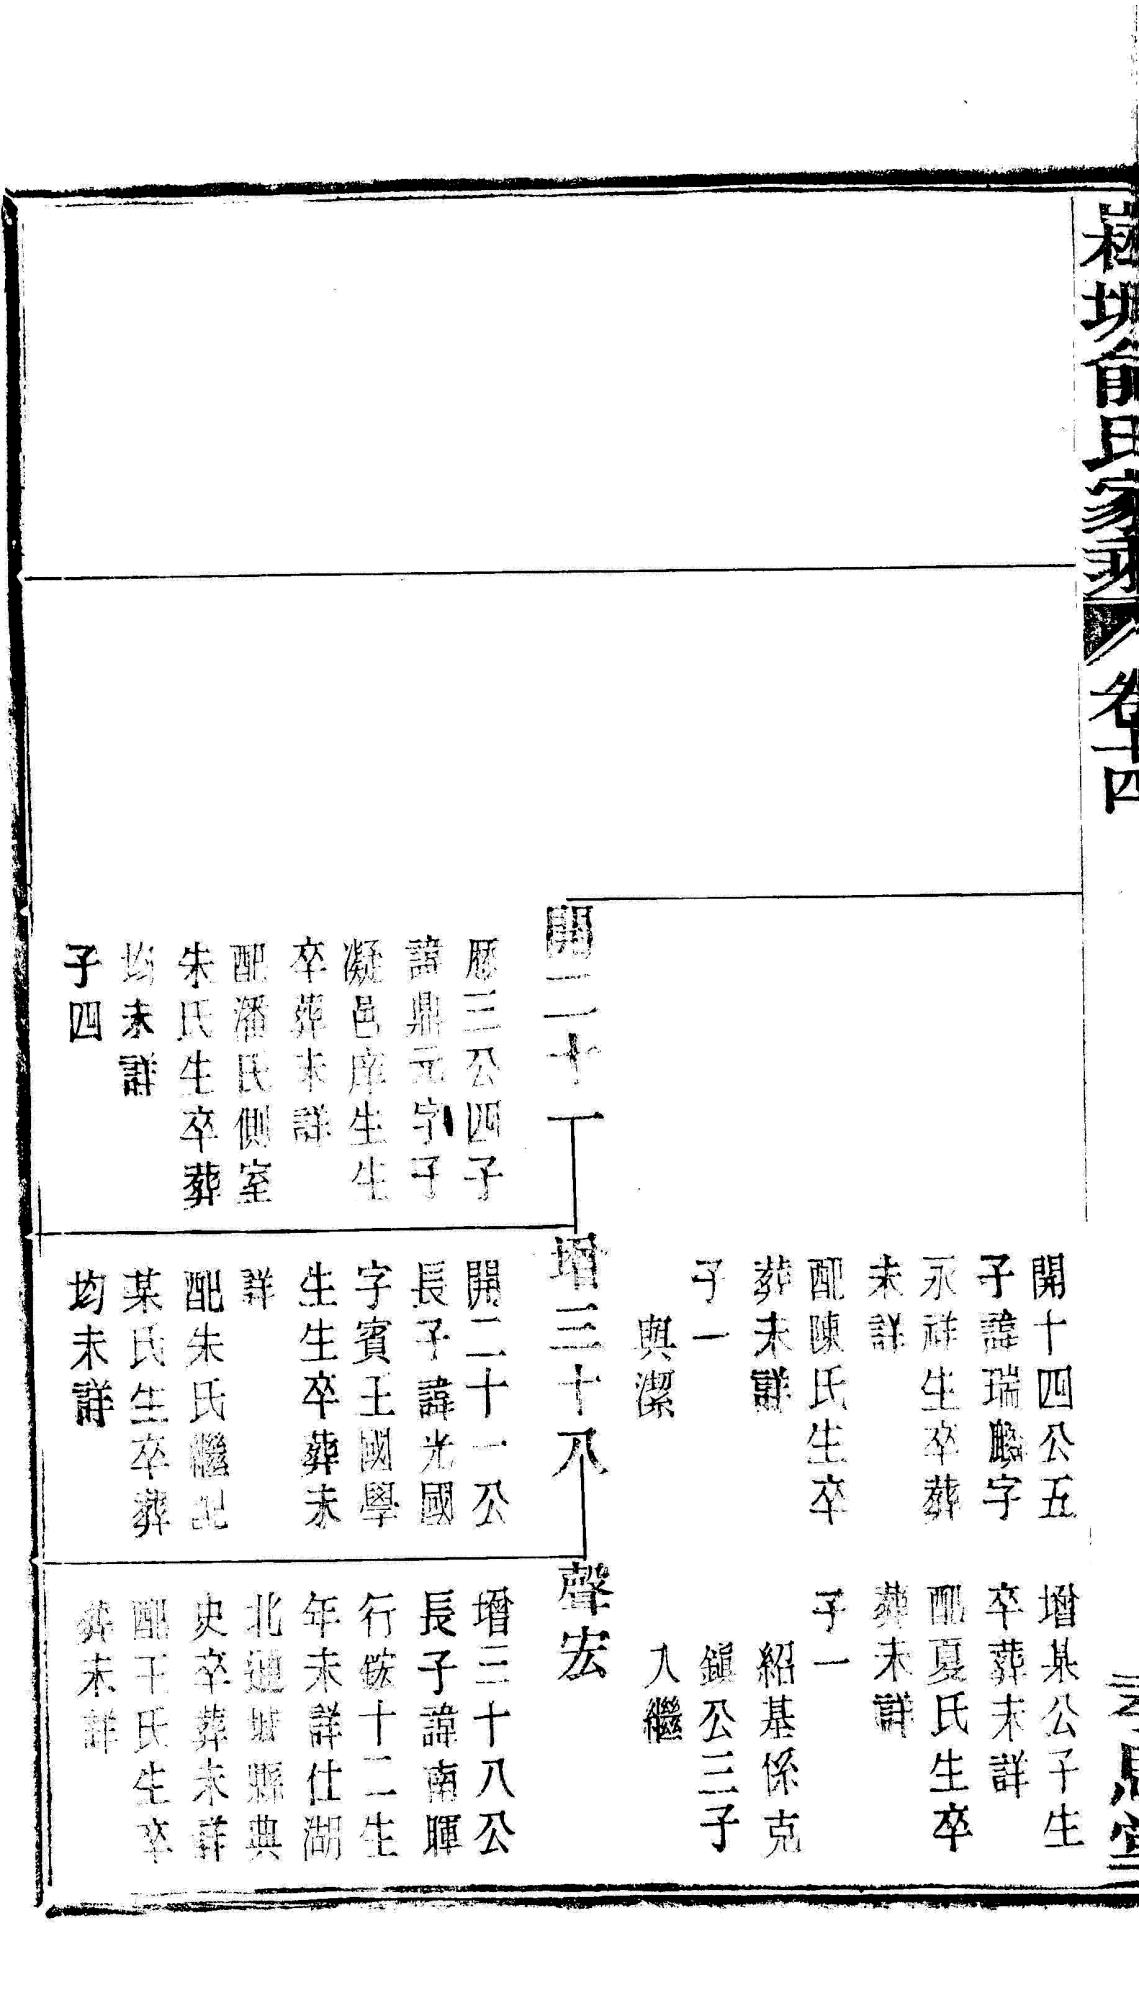 俞氏家乘
卷十四
開十四公五
子諱瑞麟字
永祥生卒葬
未詳
配陳氏生卒
葬未詳
子一
與潔
增某公子生
卒葬未詳
配夏氏生卒
葬未詳
子一
紹基係克
鎮公三子
入繼
開二十一
歷三公四子
諱鼎元字子
凝邑庠生生
卒葬未詳
配潘氏側室
朱氏生卒葬
均未詳
子四
增三十八
開二十一公
長子諱光國
字賓王國學
生生卒葬未
詳
配朱氏繼配
某氏生卒葬
均未詳
聲宏
增三十八公
長子諱南暉
行鋐十二生
年未詳仕湖
北通城縣典
史卒葬未詳
配王氏生卒
葬未詳